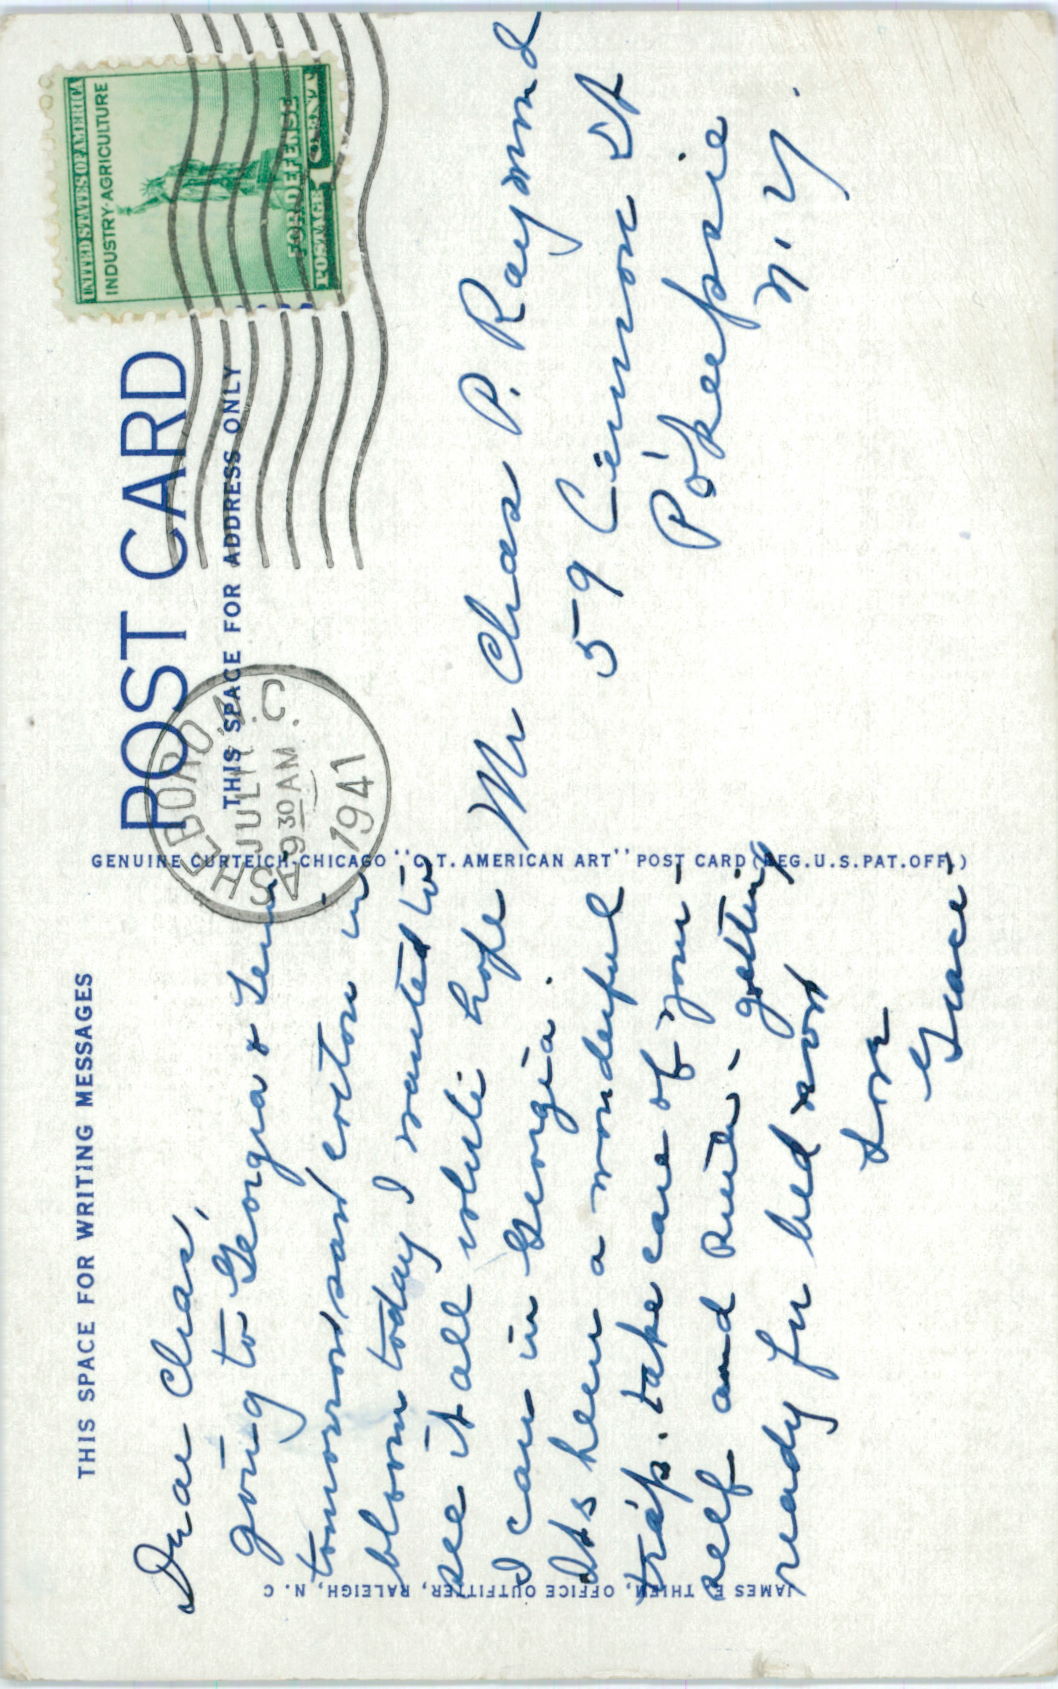 THIS SPACE FOR WRITING MESSAGES
POST CARD
THIS SPACE FOR ADDRESS ONLY
UNITED STATES OF AMERICA
INDUSTRY·AGRICULTURE
FOR DEFENSE
POSTAGE 1 CENT
ASHEBORO, N.C.
JUL
9 30 AM
1941
Dear Chas,
going to Georgia & Tenn
tomorrow saw cotton in
bloom today I wanted to
see it all while hope
I can in Georgia.
Its been a wonderful
trip. take care of your-
self and - getting
ready for bed now
Love
Grace
GENUINE CURTEICH-CHICAGO "C. T. AMERICAN ART" POST CARD (REG. U.S. PAT. OFF.)
Mr Chas P. Raymond
59 Cannon St
Po'keepsie
N. Y.
JAMES E. THIEM, OFFICE OUTFITTER, RALEIGH, N. C.